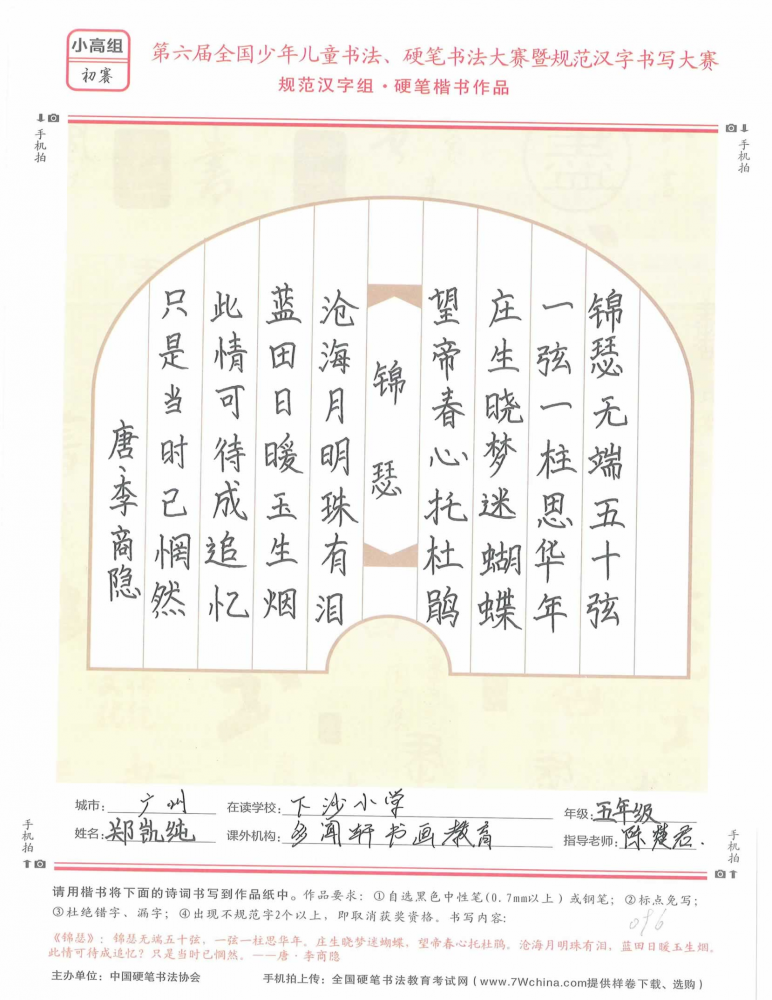 小高组
初赛
第六届全国少年儿童书法、硬笔书法大赛暨规范汉字书写大赛
规范汉字组·硬笔楷书作品
手机拍
手机拍
锦瑟无端五十弦
一弦一柱思华年
庄生晓梦迷蝴蝶
望帝春心托杜鹃
锦瑟
沧海月明珠有泪
蓝田日暖玉生烟
此情可待成追忆
只是当时已惘然
唐、李商隐
城市：广州 在读学校：下沙小学 年级：五年级
姓名：郑凯纯 课外机构：多闻轩书画教育 指导老师：陈楚君.
手机拍
手机拍
请用楷书将下面的诗词书写到作品纸中。作品要求：①自选黑色中性笔(0.7mm以上）或钢笔；②标点免写；
③杜绝错字、漏字；④出现不规范字2个以上，即取消获奖资格。书写内容：
096
《锦瑟》：锦瑟无端五十弦，一弦一柱思华年。庄生晓梦迷蝴蝶，望帝春心托杜鹃。沧海月明珠有泪，蓝田日暖玉生烟。
此情可待成追忆？只是当时已惘然。——唐·李商隐
主办单位：中国硬笔书法协会 手机拍上传：全国硬笔书法教育考试网（www.7Wchina.com提供样卷下载、选购）